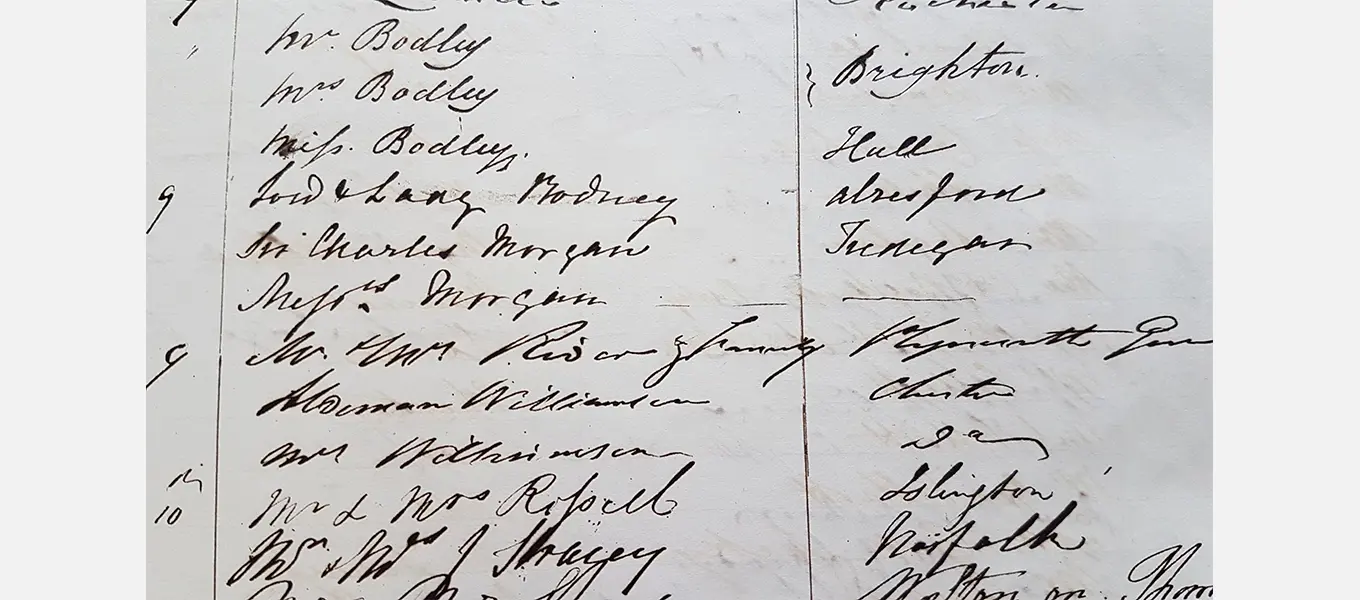 Mr. Bodley
Mrs Bodley } Brighton.
Miss. Bodley. Hull
9 Lord & Lady Rodney alresford
Sir Charles Morgan Tredegar
Messrs Morgan
9 Mr & Mrs & Family Plymouth
Alderman Williamson Chester
Mrs Williamson Do
10 Mr & Mrs Russell Islington
Mr & Mrs J Stracey Norfolk